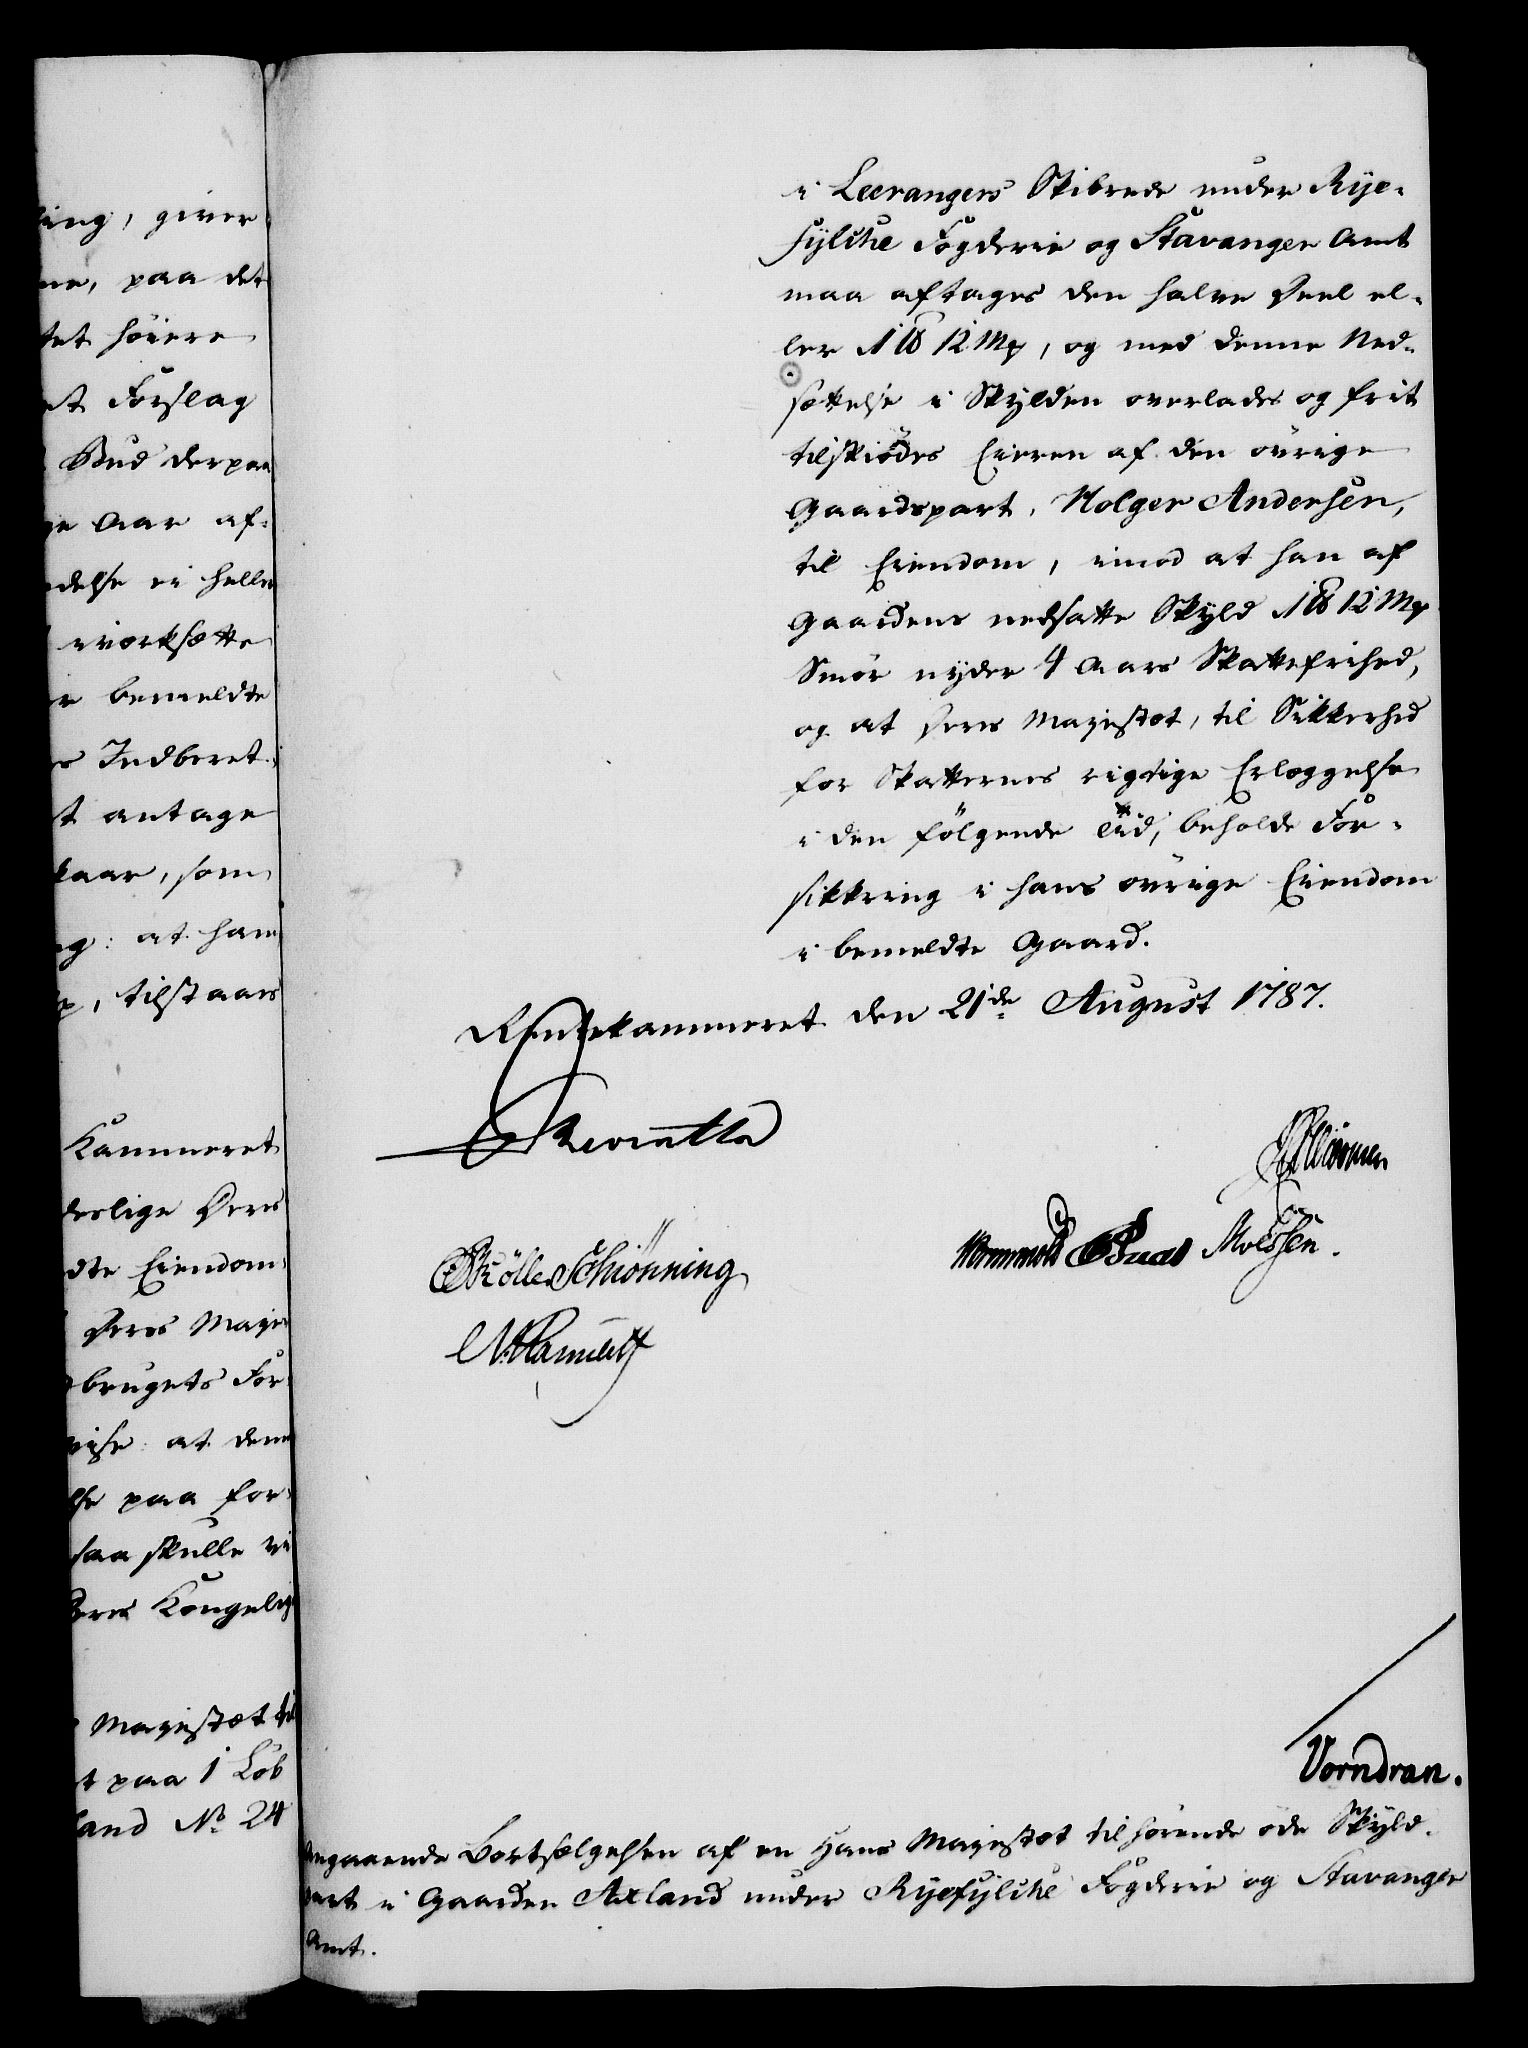 ing, giver
ne, paa det
tet høiere
et Forslag
Bud derpaa
ge Aar af-
delse ei heller
iværksætte
r bemeldte
s Indberet-
t antage
kaar, som
g: at ham
, tilstaaes
Kammeret
derlige Deres
dte Eiendom
Deres Maje
brugets For-
vise: at den
lse paa for-
saa skulle vi
Deres Kongelig
Majestæt til
t paa 1 Løb
land No 24
i Leerangers Skibrede under Rye-
fylche Fogderie og Stavanger Amt
maa aftages den halve Deel el-
ler 1 ℔ 12 Mk, og med denne Ned-
sættelse i Skylden overlades og frit
tilskiødes Eieren af den øvrige
Gaardspart, Holger Andersen,
til Eiendom, imod at han af
Gaardens nedsatte Skyld 1 ℔ 12 Mk
Smør nyder 4 Aars Skattefrihed,
og at Deres Majestæt, til Sikkerhed
for Skatternes rigtige Erlæggelse
i den følgende Tiid, beholde For-
sikkring i hans øvrige Eiendom
i bemeldte Gaard.
Rentekammeret den 21de August 1787.
Reventlow
Schiønning
Wormskiold
Moessen.
Vorndran.
Angaaende Bortsælgelsen af en Hans Majestæt tilhørende øde Skyld-
part i Gaarden Axland under Ryefylche Fogderie og Stavanger
Amt.